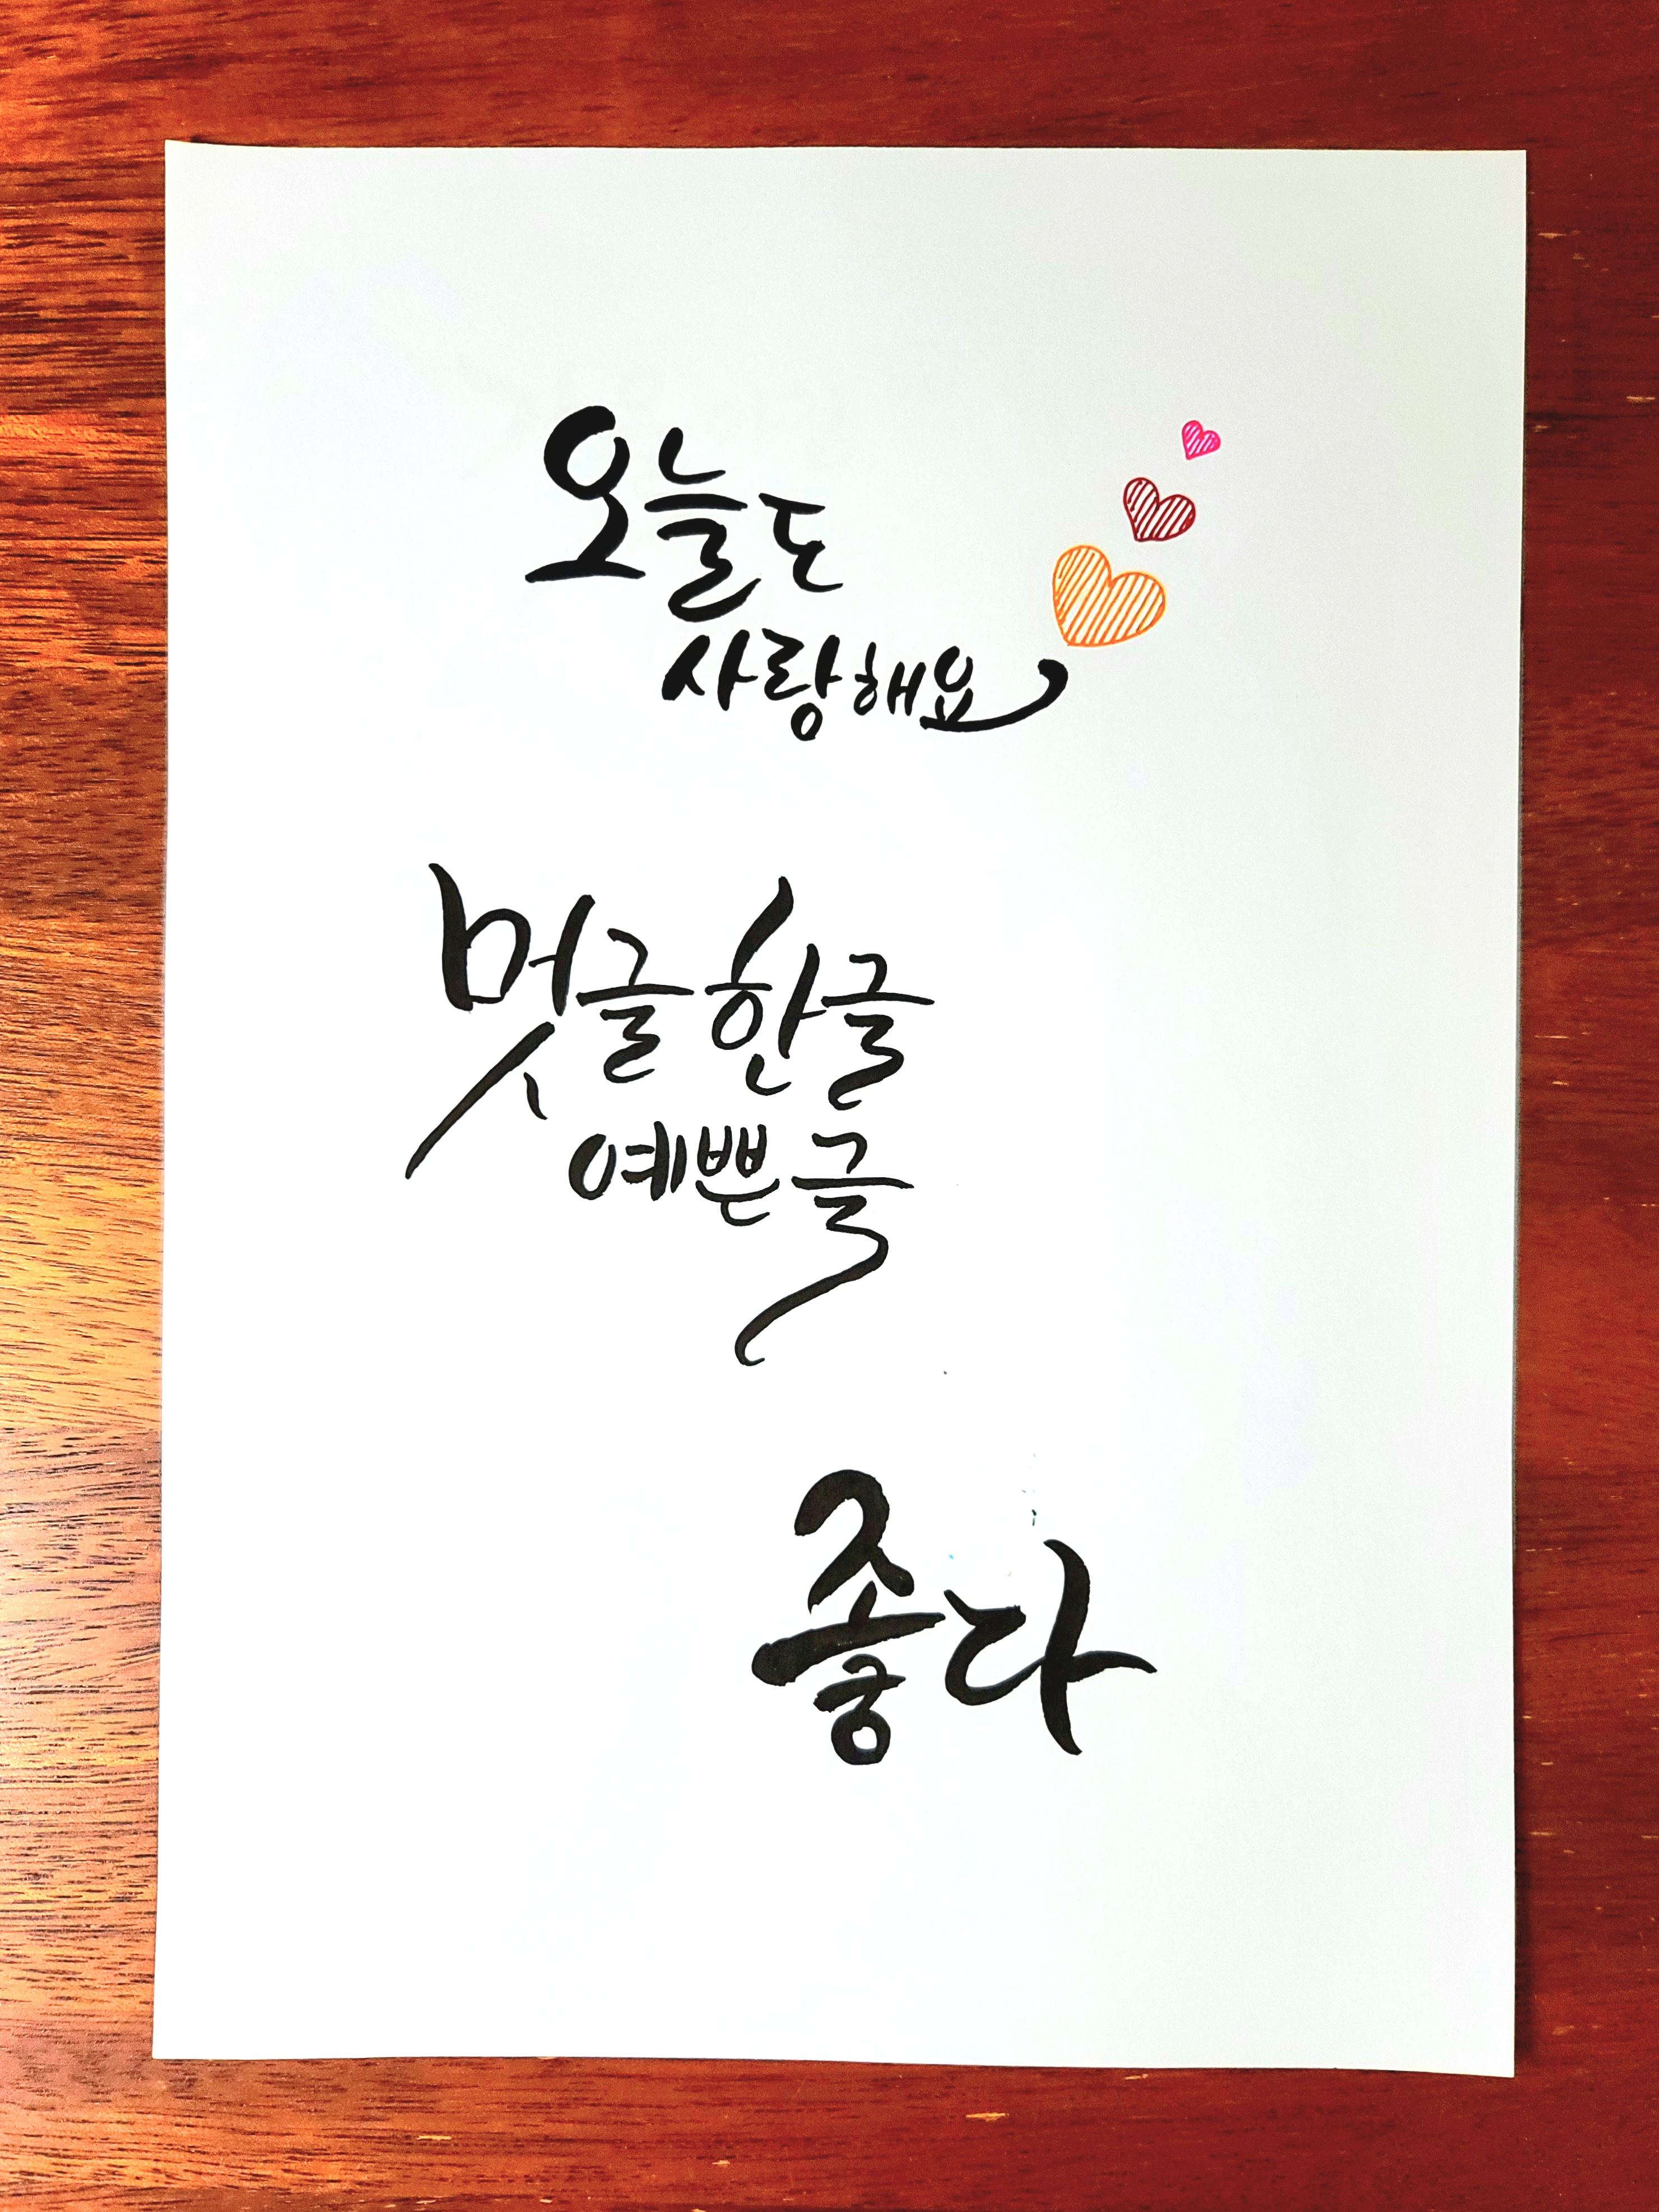 오늘도
사랑해요
멋글한글
예쁜글
좋다